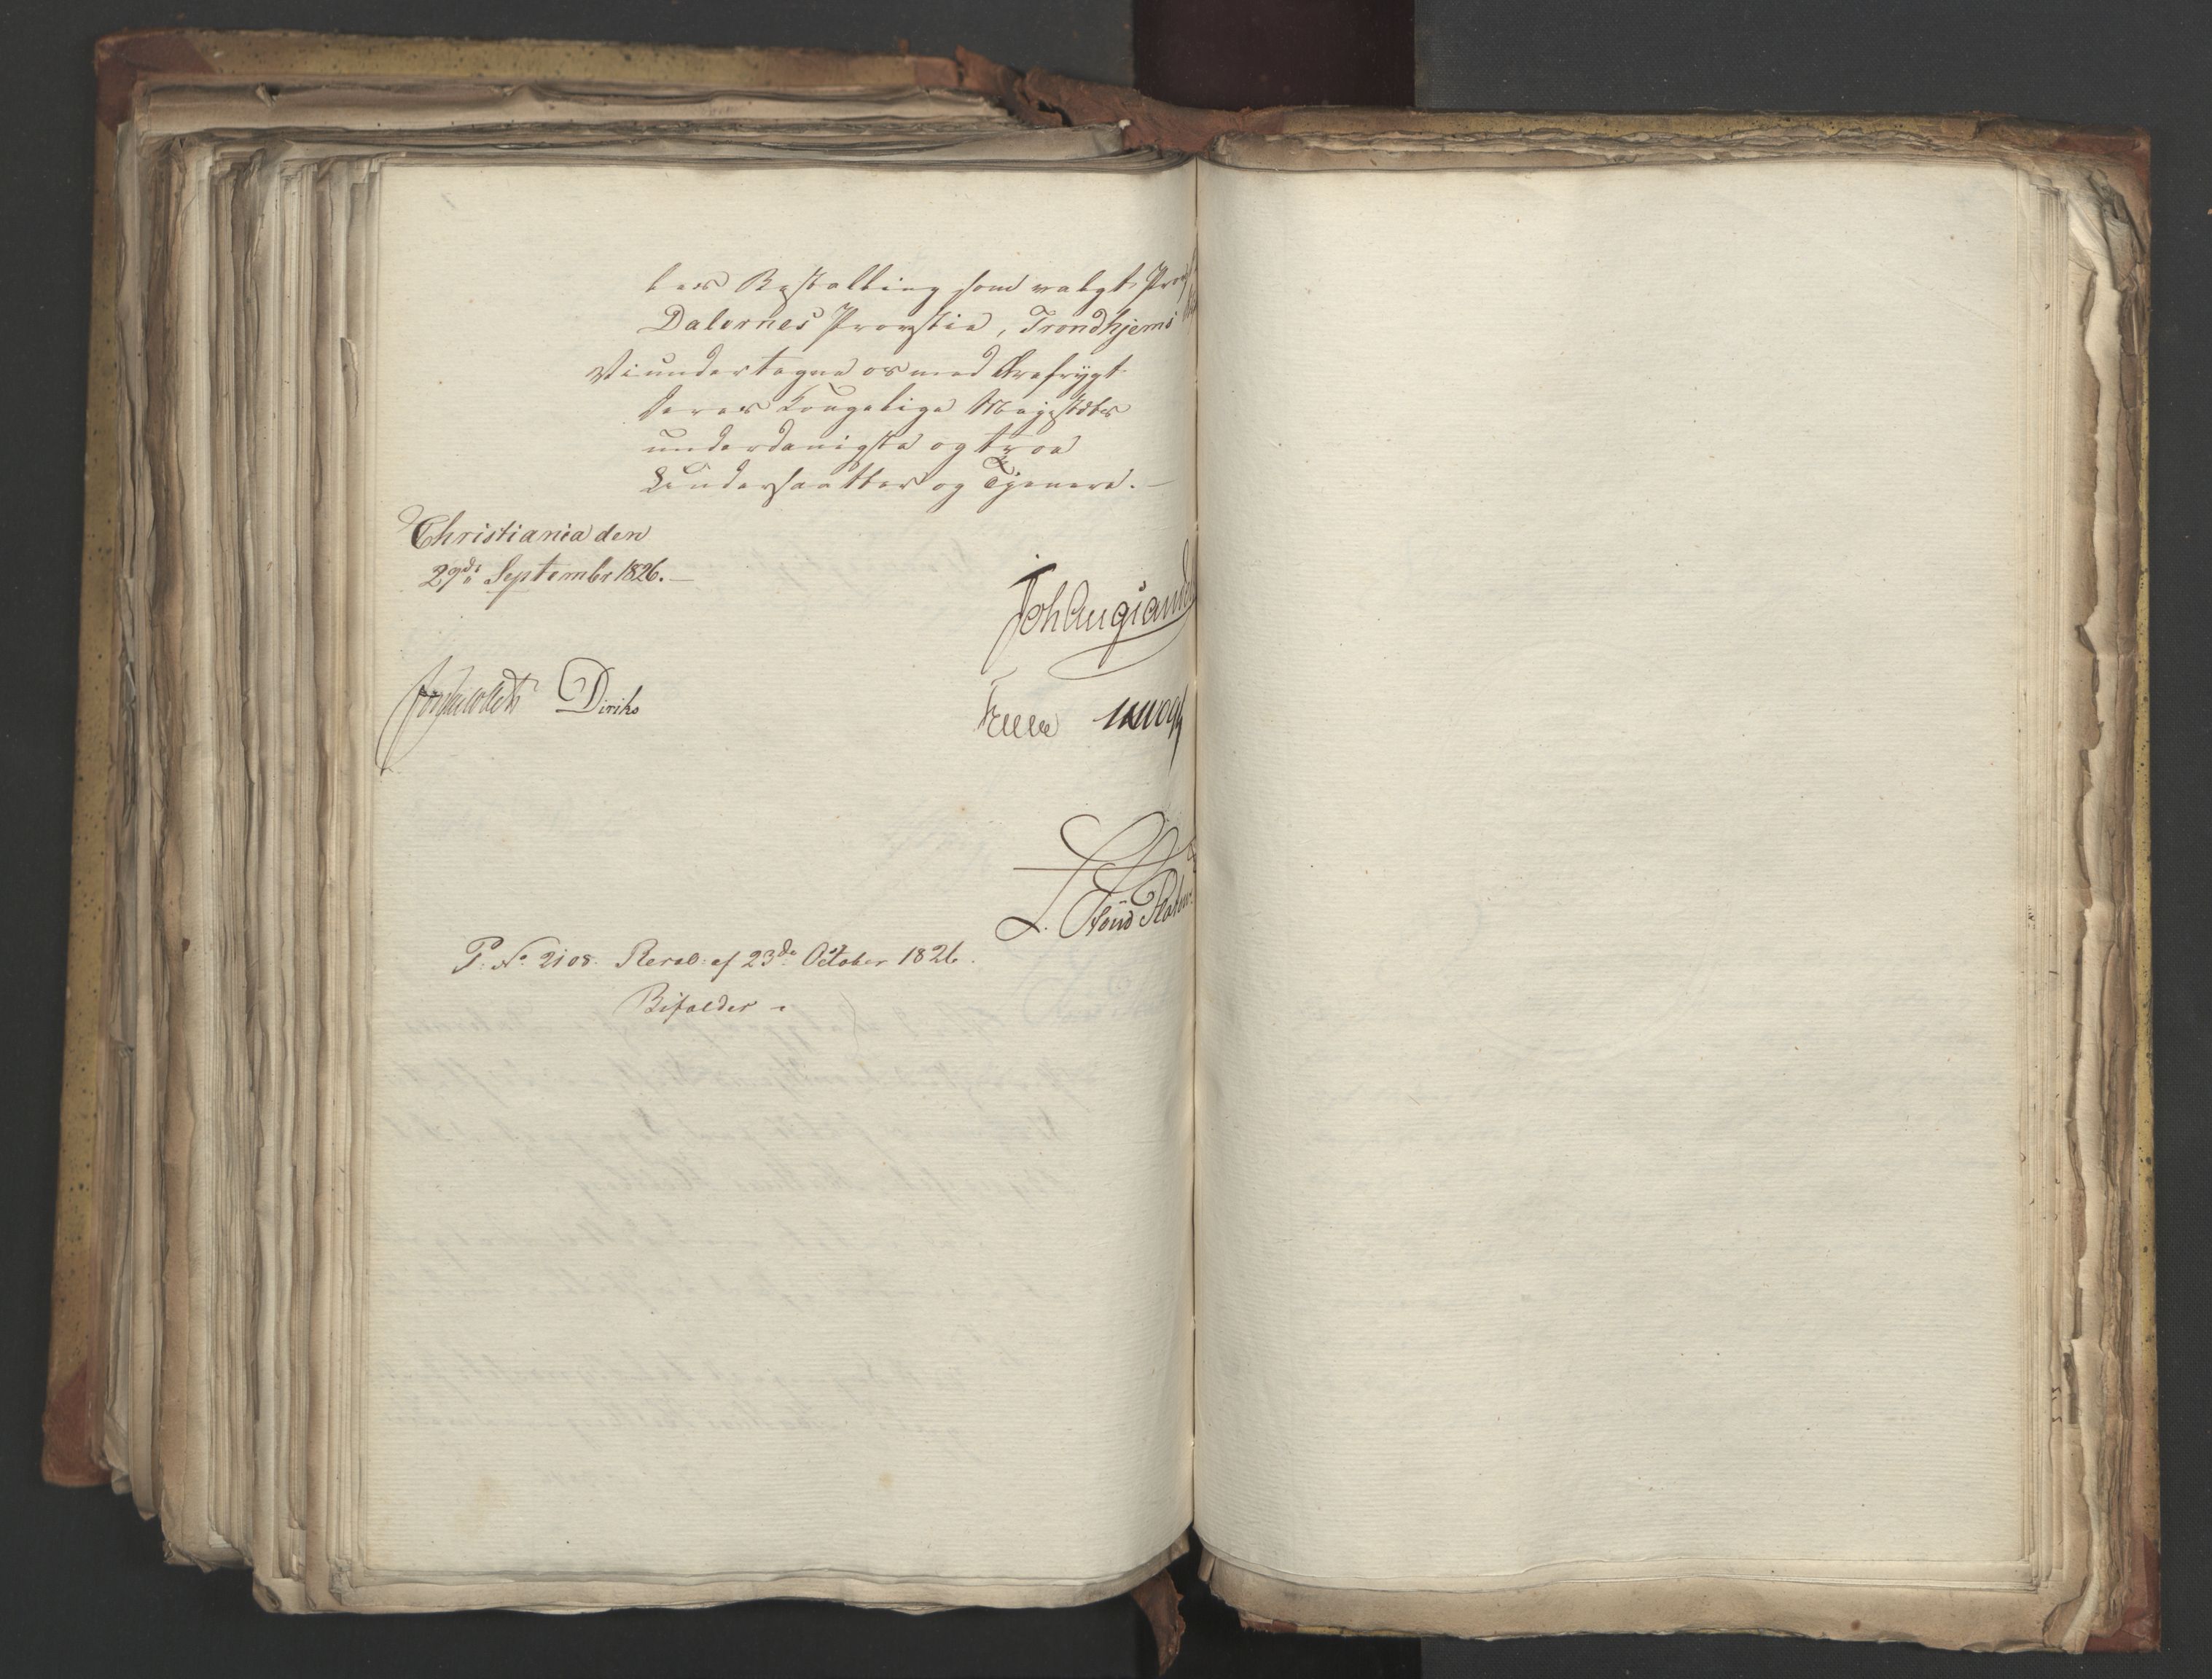 les Bestalling som valgt Provst
Dalernes Provstie, Trondhjems
Vi undertegne os med Ærefrygt
Deres Kongelige Majestæts
underdanigste og troe
Undersaatter og Tjenere. —
Christiania den
29de September 1826. —
Jonas Collett Diriks
Treschow Motzfeldt
P. No 2108. Resol: af 23de October 1826.
Bifaldes -